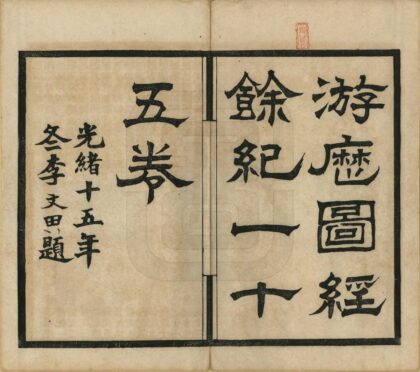 游歷圖經
餘紀一十
五卷
光緒十五年
冬李文田題